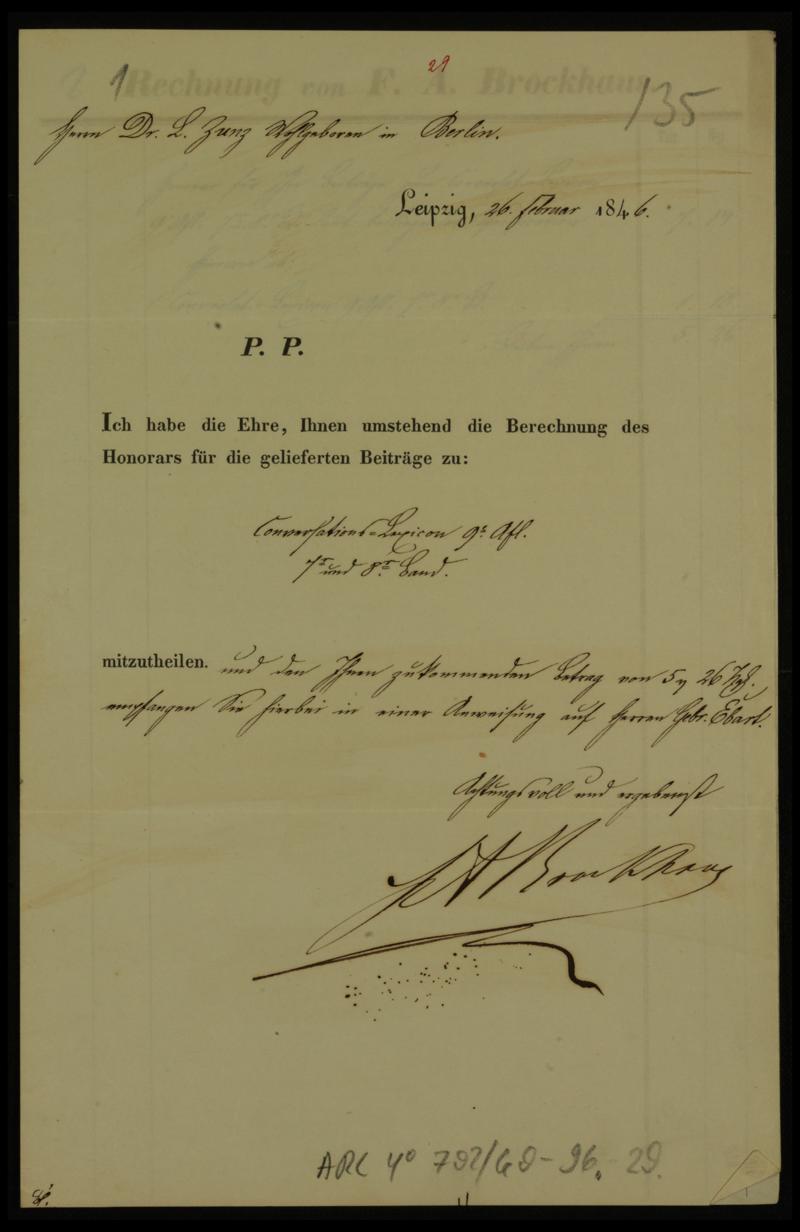 29
1
135
Herrn Dr. L. Zunz Wohlgeboren in Berlin.
Leipzig, 26. Februar 1846.
P. P.
Ich habe die Ehre, Ihnen umstehend die Berechnung des
Honorars für die gelieferten Beiträge zu:
Conversations-Lexicon 9r Afl.
7r und 8r Band.
mitzutheilen. und den Ihnen zukommenden Betrag von 5 26
empfangen Sie hierbei in einer Anweisung auf Herren Gebr. Ebart.
Achtungsvoll und ergebenst
F A Brockhaus
ARC 4° 792/G9-96. 29.